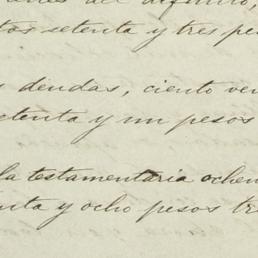 del difunto,
tos setenta y tres pe
deudas, ciento ve
etenta y un pesos
la testamentaria ochen
nta y ocho pesos tr